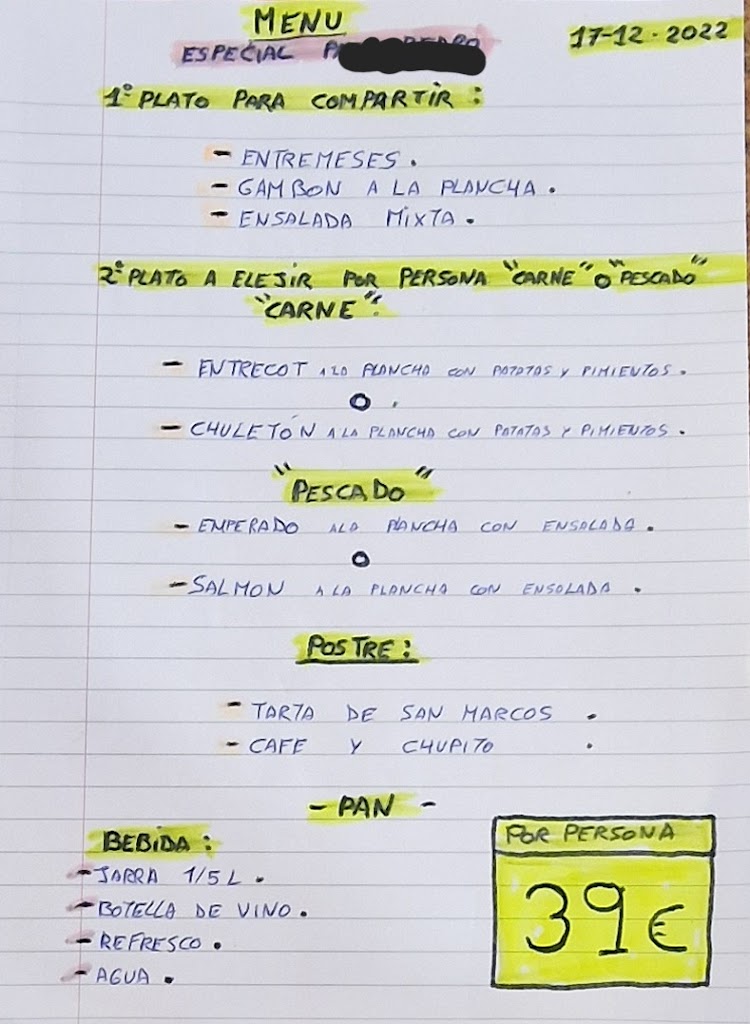 MENU
17-12-2022
ESPECIAL
1º PLATO PARA COMPARTIR:
- ENTREMESES.
- GAMBON A LA PLANCHA.
- ENSALADA MIXTA.
2º PLATO A ELEJIR POR PERSONA "CARNE" O "PESCADO"
"CARNE".
- ENTRECOT A LA PLANCHA CON PATATAS Y PIMIENTOS.
O.
- CHULETÓN A LA PLANCHA CON PATATAS Y PIMIENTOS.
"PESCADO"
- EMPERADO A LA PLANCHA CON ENSALADA.
O
- SALMON A LA PLANCHA CON ENSOLADA.
POSTRE:
- TARTA DE SAN MARCOS.
- CAFE Y CHUPITO.
- PAN -
BEBIDA:
- JARRA 1/5 L.
- BOTELLA DE VINO.
- REFRESCO.
- AGUA.
POR PERSONA
39€